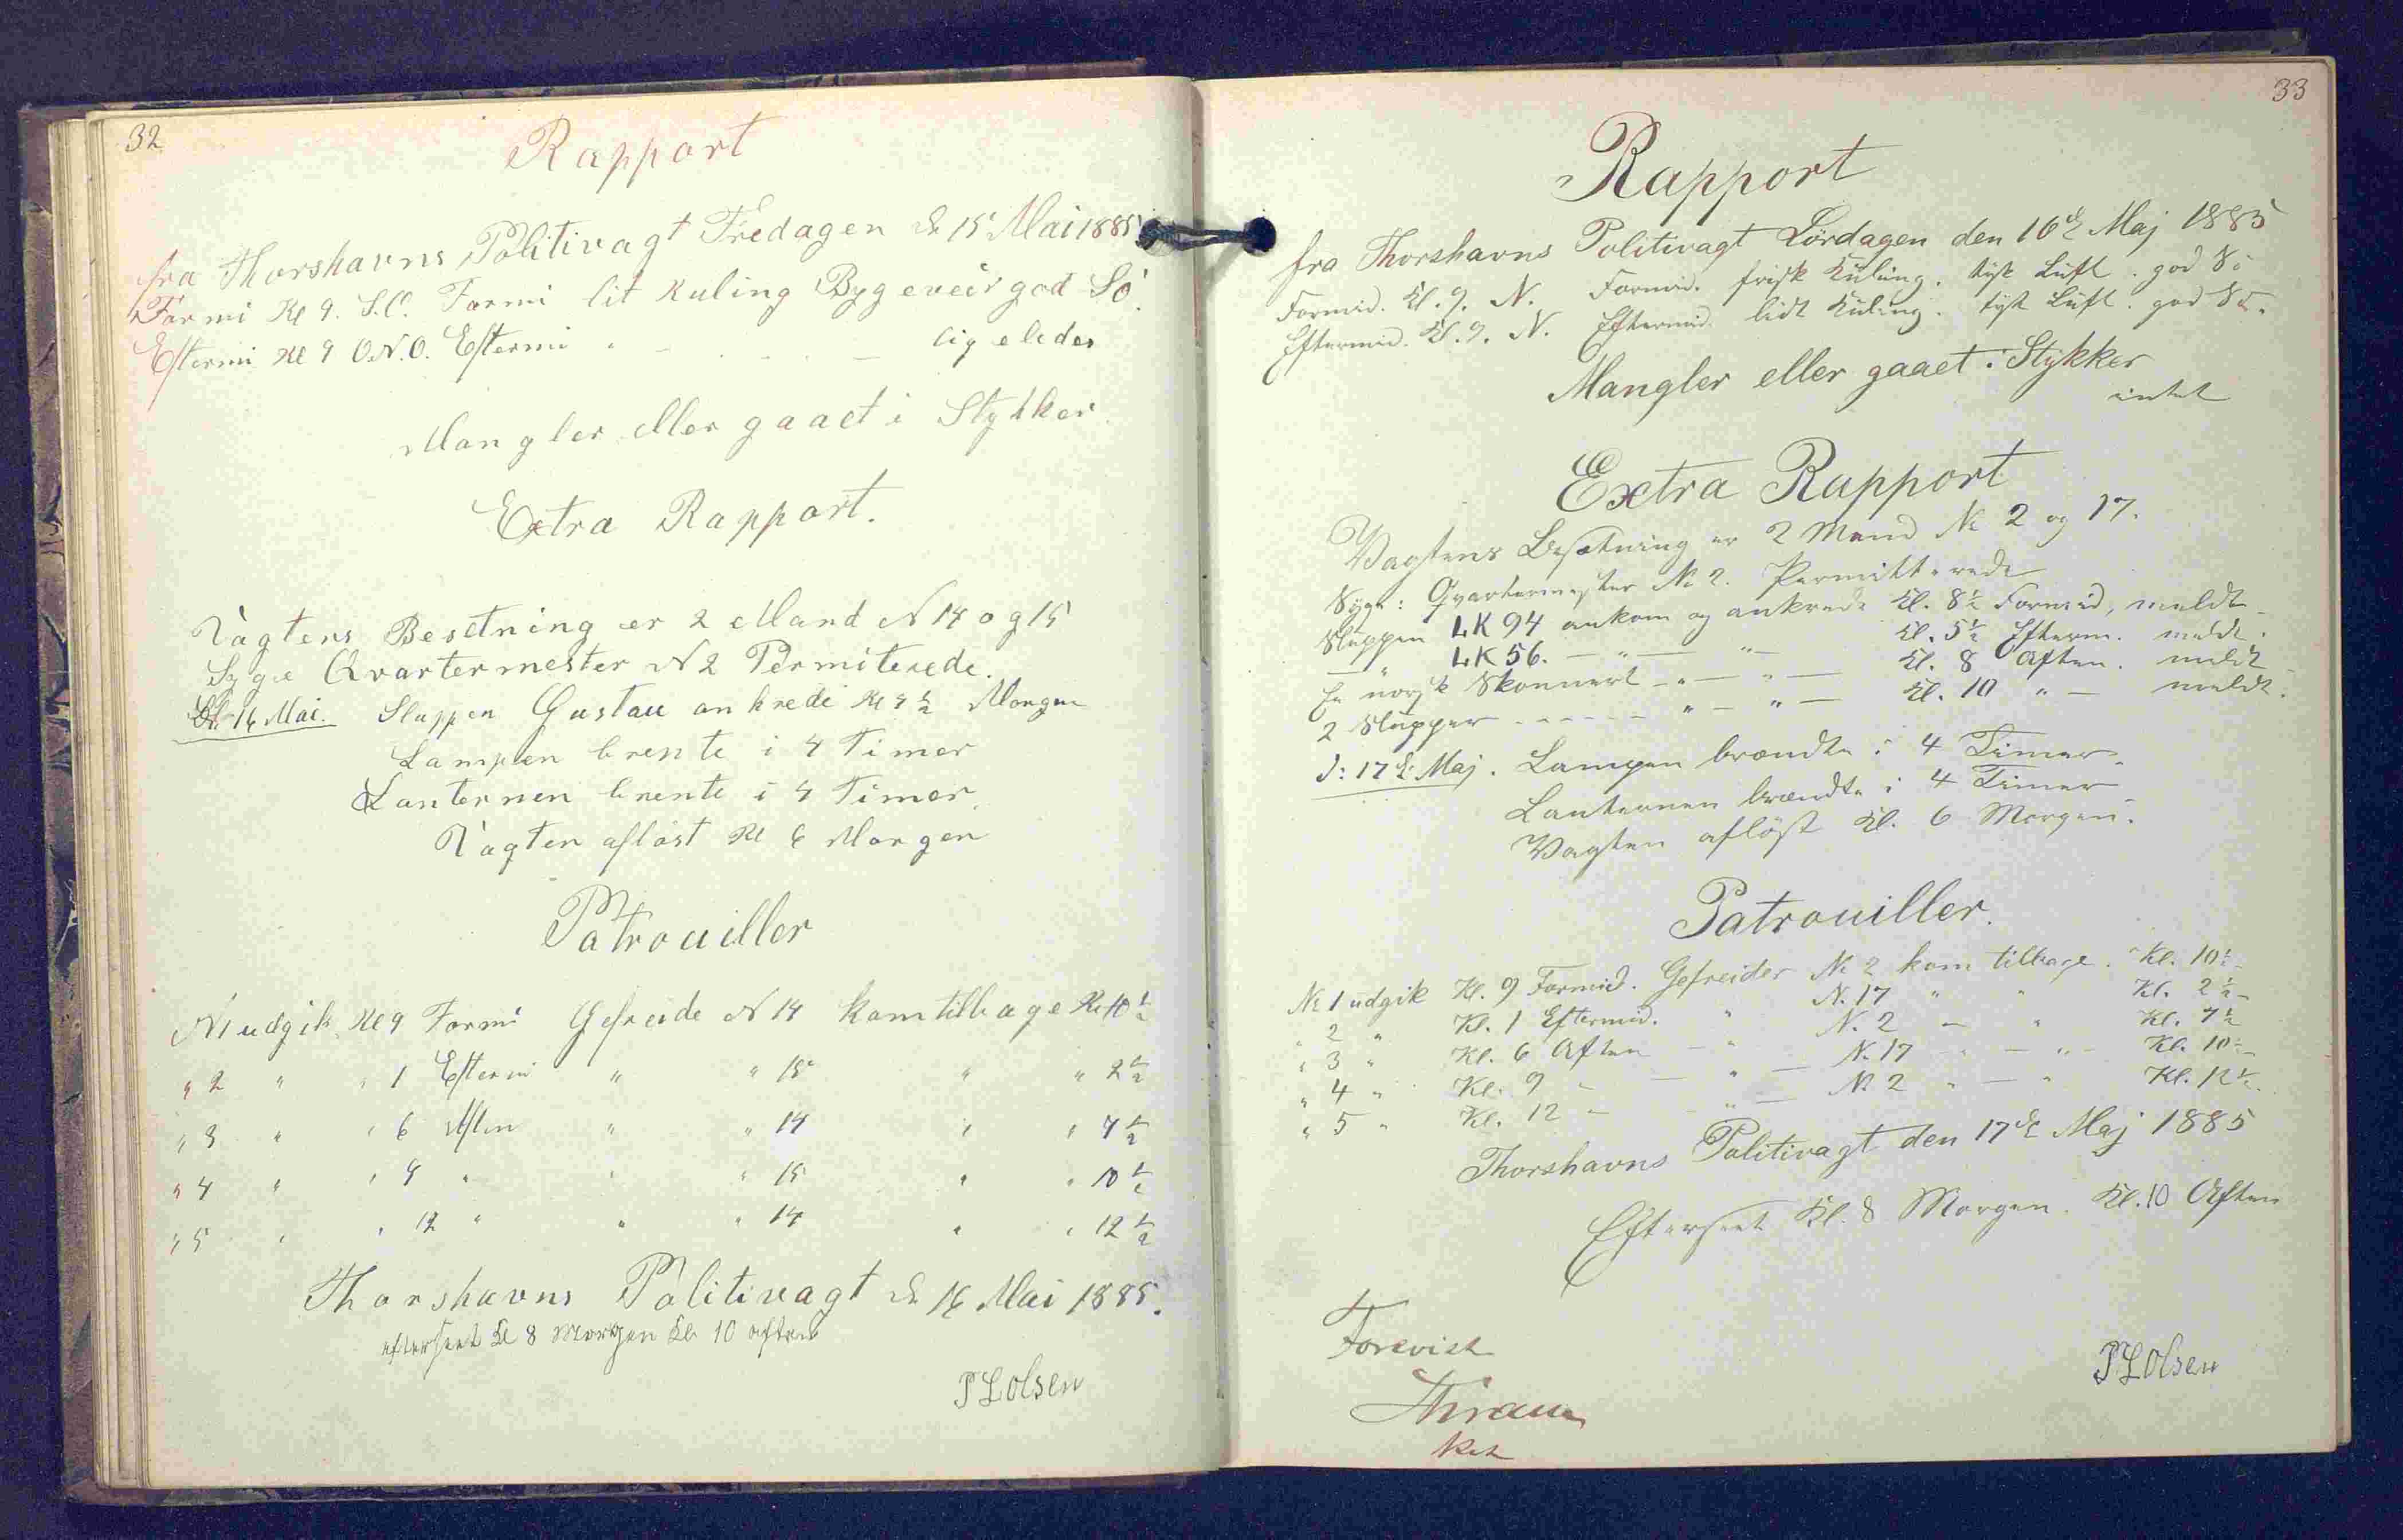 32
Rapport
fra Thorshavns Politivagt Fredagen d 15 Mai 1885
Formi Kl 9. S.O. Formi lit Kuling Bygeveir god Sö.
Eftermi Kl 9 O.N.O. Eftermi " - . . . - ligeledes
Mangler eller gaaet i Stykker
Extra Rapport.
Vagtens Besetning er 2 Mand N 14 og 15
Syge Qvartermester N 2 Permiterede.
D. 16 Mai. Sluppen Gustav ankrede Kl 4 1/2 Morgen
Lampen brente i 4 Timer
Lanternen brente i 4 Timer.
Vagten aflöst Kl 6 Morgen
Patrouiller
N 1 udgik Kl 9 Formi Gefreide N 14 kom tilbage Kl 10 1/2
" 2 " " 1 Eftermi " " 15 " " 2 1/2
" 3 " " 6 Aften " " 14 " " 7 1/2
" 4 " " 9 " " " 15 " " 10 1/2
" 5 " " 12 " " " 14 " " 12 1/2
Thorshavns Politivagt d 16 Mai 1885.
efterseet Kl 8 Morgen Kl 10 aften
P L Olsen
33
Rapport
fra Thorshavns Politivagt Lördagen den 16d Maj 1885
Formid. Kl. 9. N. Formid. frisk Kuling. tyk Luft. god Sö
Eftermid. Kl. 9. N. Eftermid. lidt Kuling. tyk Luft. god Sö.
Mangler eller gaaet i Stykker
intet
Extra Rapport
Vagtens Besætning er 2 Mand No 2 og 17.
Syge: Qvartermester No 2. Permitterede
Sluppen LK 94 ankom og ankrede Kl. 8 1/2 Formid, meldt
— " LK 56. — " — " — Kl. 5 1/2 Efterm. meldt.
En norsk Skonnert — " — " — Kl. 8 Aften. meldt
2 Slupper - - - - - - " — " — Kl. 10 " — meldt.
D: 17d: Maj. Lampen brændte i 4 Timer.
Lanternen brændte i 4 Timer
Vagten aflöst Kl. 6 Morgen.
Patrouiller.
No 1 udgik Kl. 9 Formid. Gefreider No 2 kom tilbage. Kl. 10 1/2
" 2 " Kl. 1 Eftermid. " N. 17 " " Kl. 2 1/2
" 3 " Kl. 6 Aften — " N. 2 — " Kl. 7 1/2
" 4 " Kl. 9 — — " — N. 17 " — " — Kl. 10 1/2
" 5 " Kl. 12 — " — No 2 " — " Kl. 12 1/2.
Thorshavns Politivagt den 17d Maj 1885
Efterseet Kl. 8 Morgen. Kl. 10 Aften
P L Olsen
Forevist